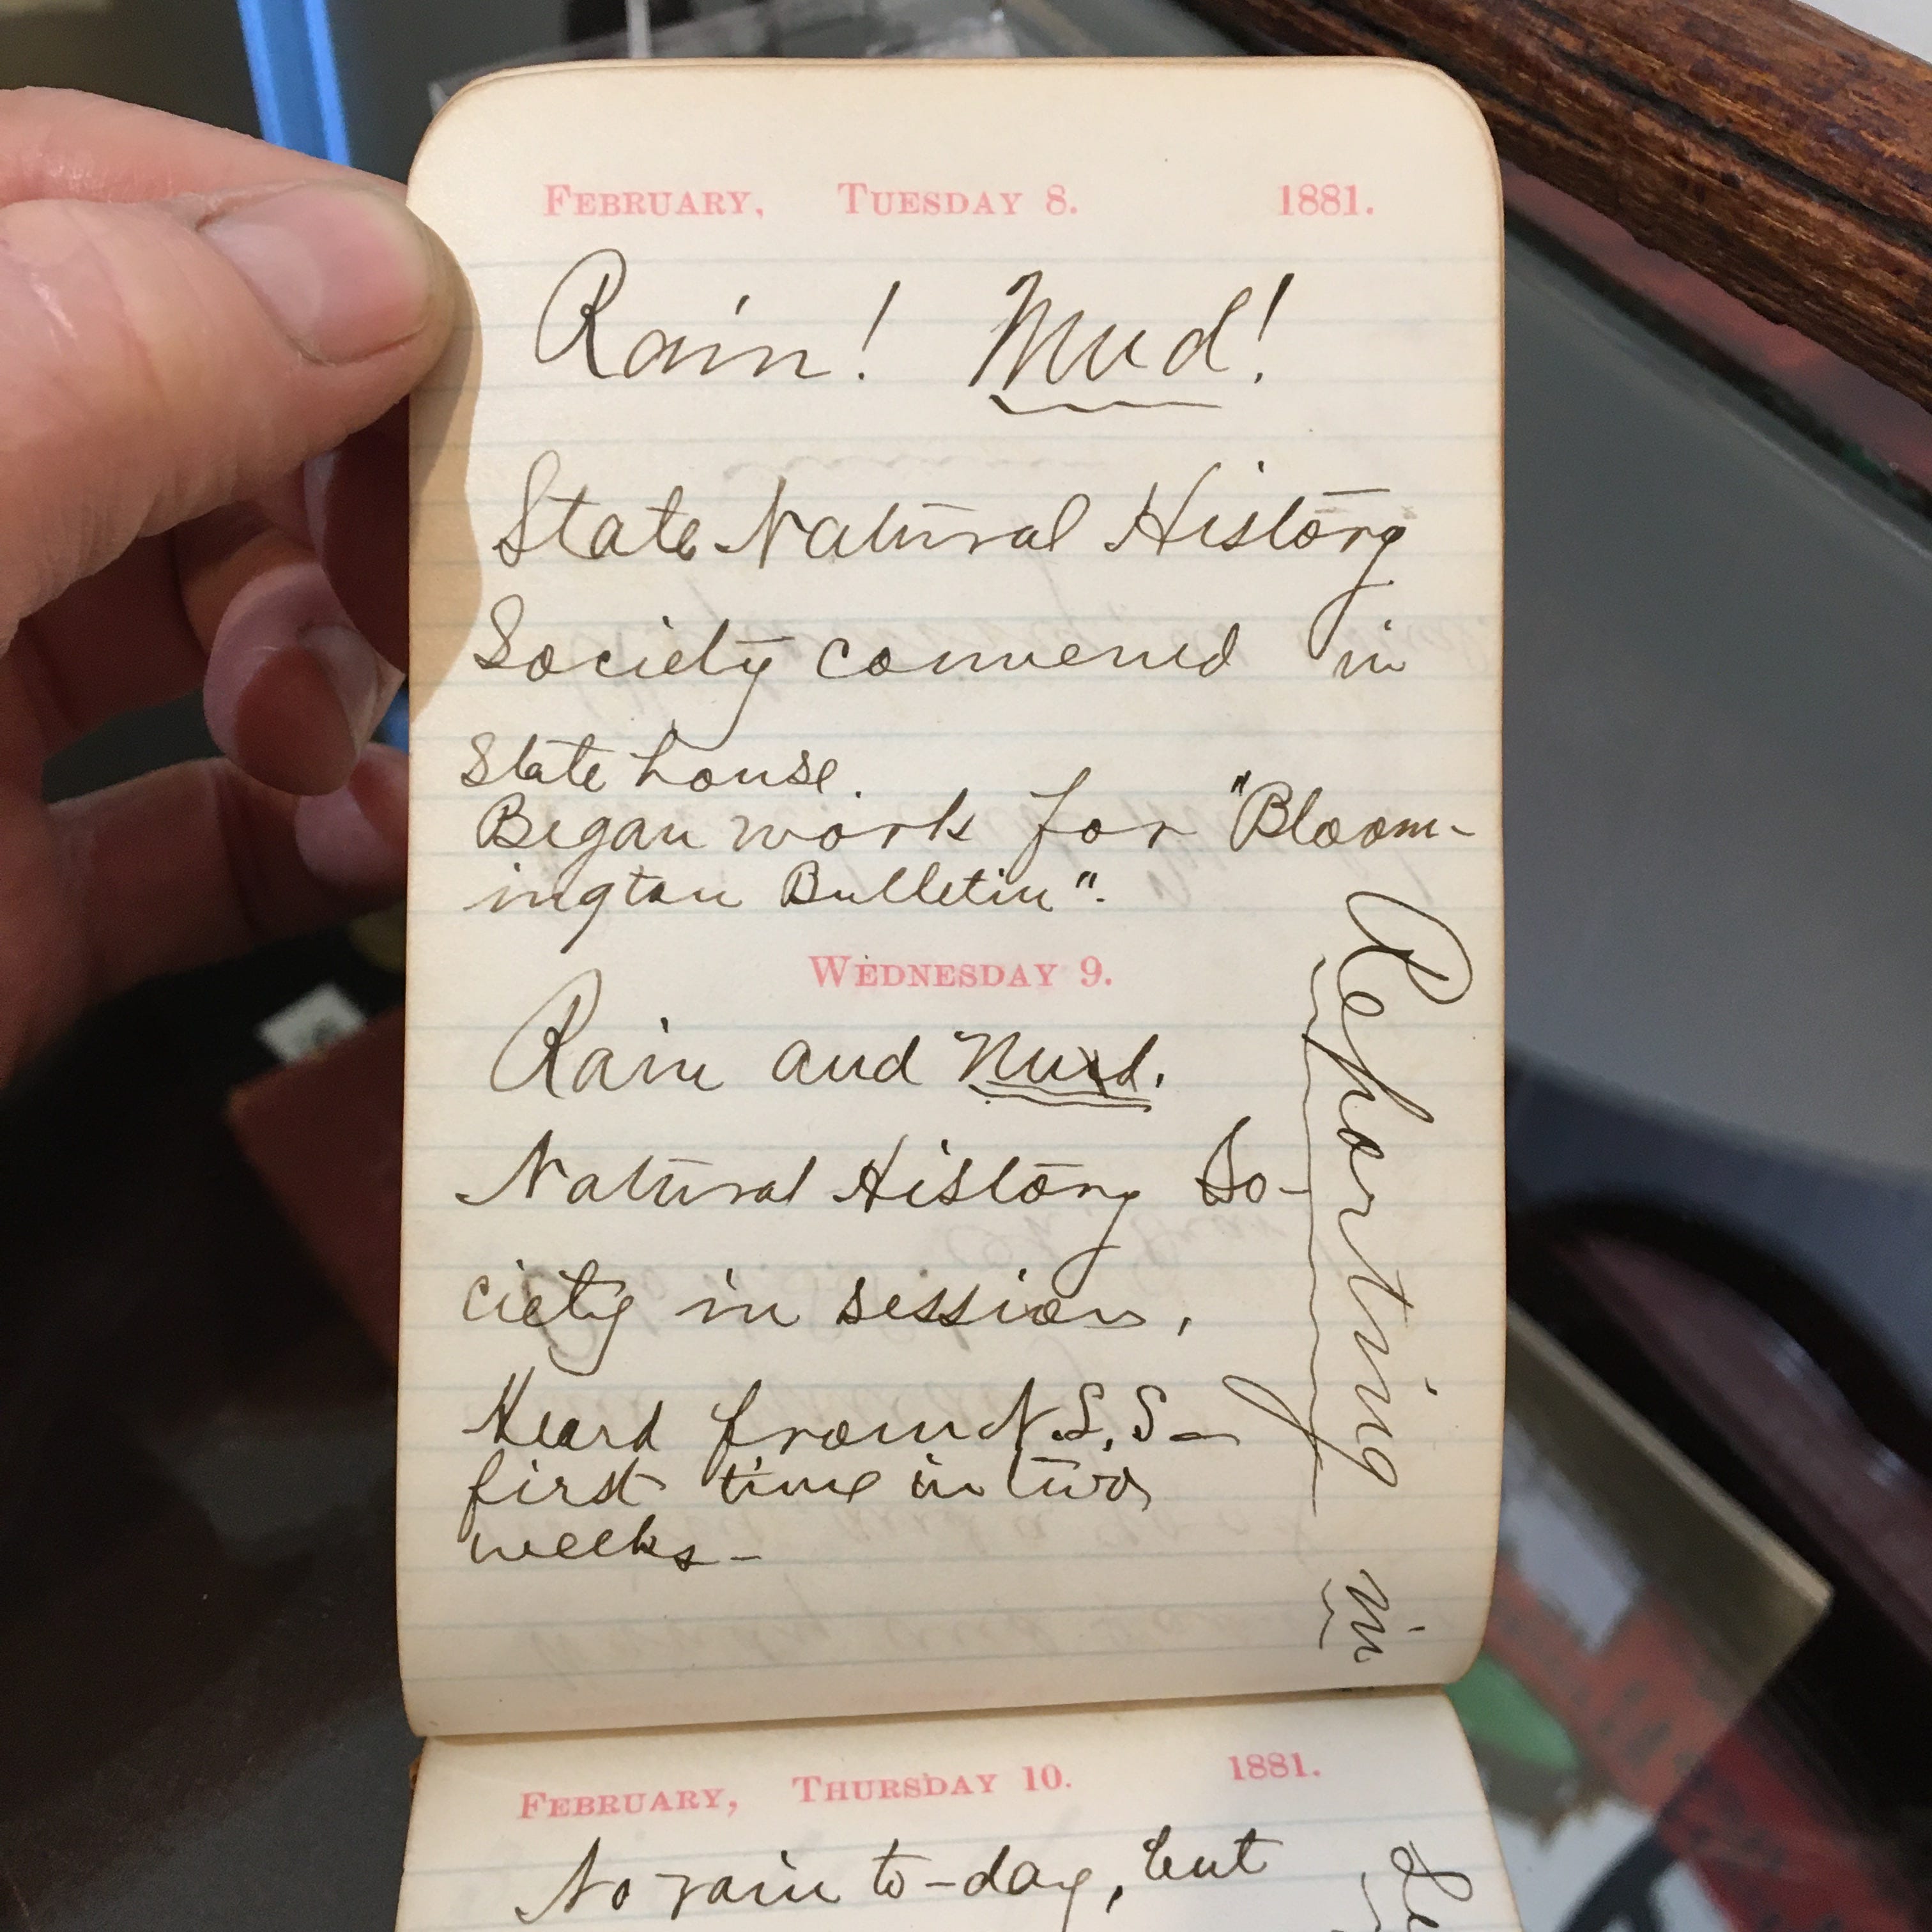 FEBRUARY, TUESDAY 8. 1881.
Rain! Mud!
State Natural History
Society convened in
State house.
Began work for "Bloom-
ington Bulletin".
WEDNESDAY 9.
Rain and Mud.
Natural History So-
ciety in session,
Heard from N.S.S-
first time in two
weeks-
Reporting in
FEBRUARY, THURSDAY 10. 1881.
No rain to-day, but